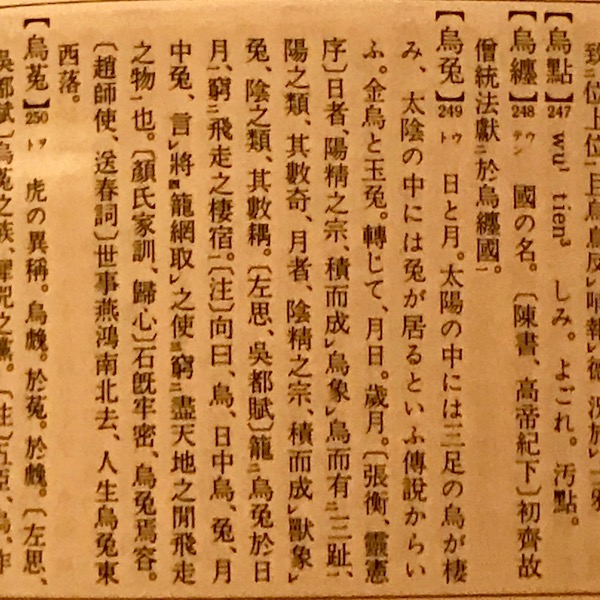 反レ哺報レ
【烏點】247 wu¹ tien³ しみ。よごれ。汚點。
【烏纏】248 ウテン 國の名。〔陳書、高帝紀下〕初齊故
僧統法獻二於烏纏國一。
【烏兔】249 ウト 日と月。太陽の中には三足の烏が棲
み、太陰の中には兔が居るといふ傳說からい
ふ。金烏と玉兔。轉じて、月日。歲月。〔張衡、靈憲
序〕日者、陽精之宗、積而成レ烏象レ烏而有二三趾一、
陽之類、其數奇、月者、陰精之宗、積而成レ獸象レ
兔、陰之類、其數耦。〔左思、吳都賦〕籠二烏兔於日
月一、窮二飛走之棲宿一。〔注〕向曰、烏、日中烏、兔、月
中兔、言レ將四籠網取レ之使三窮二盡天地之閒飛走
之物一也。〔顏氏家訓、歸心〕石旣牢密、烏兔焉容。
〔趙師使、送春詞〕世事燕鴻南北去、人生烏兔東
西落。
【烏菟】250 ヲト 虎の異稱。烏䖘。於菟。於䖘。〔左思、
吳都賦〕烏菟之族、犀兕之黨。〔注〕五臣、烏、作